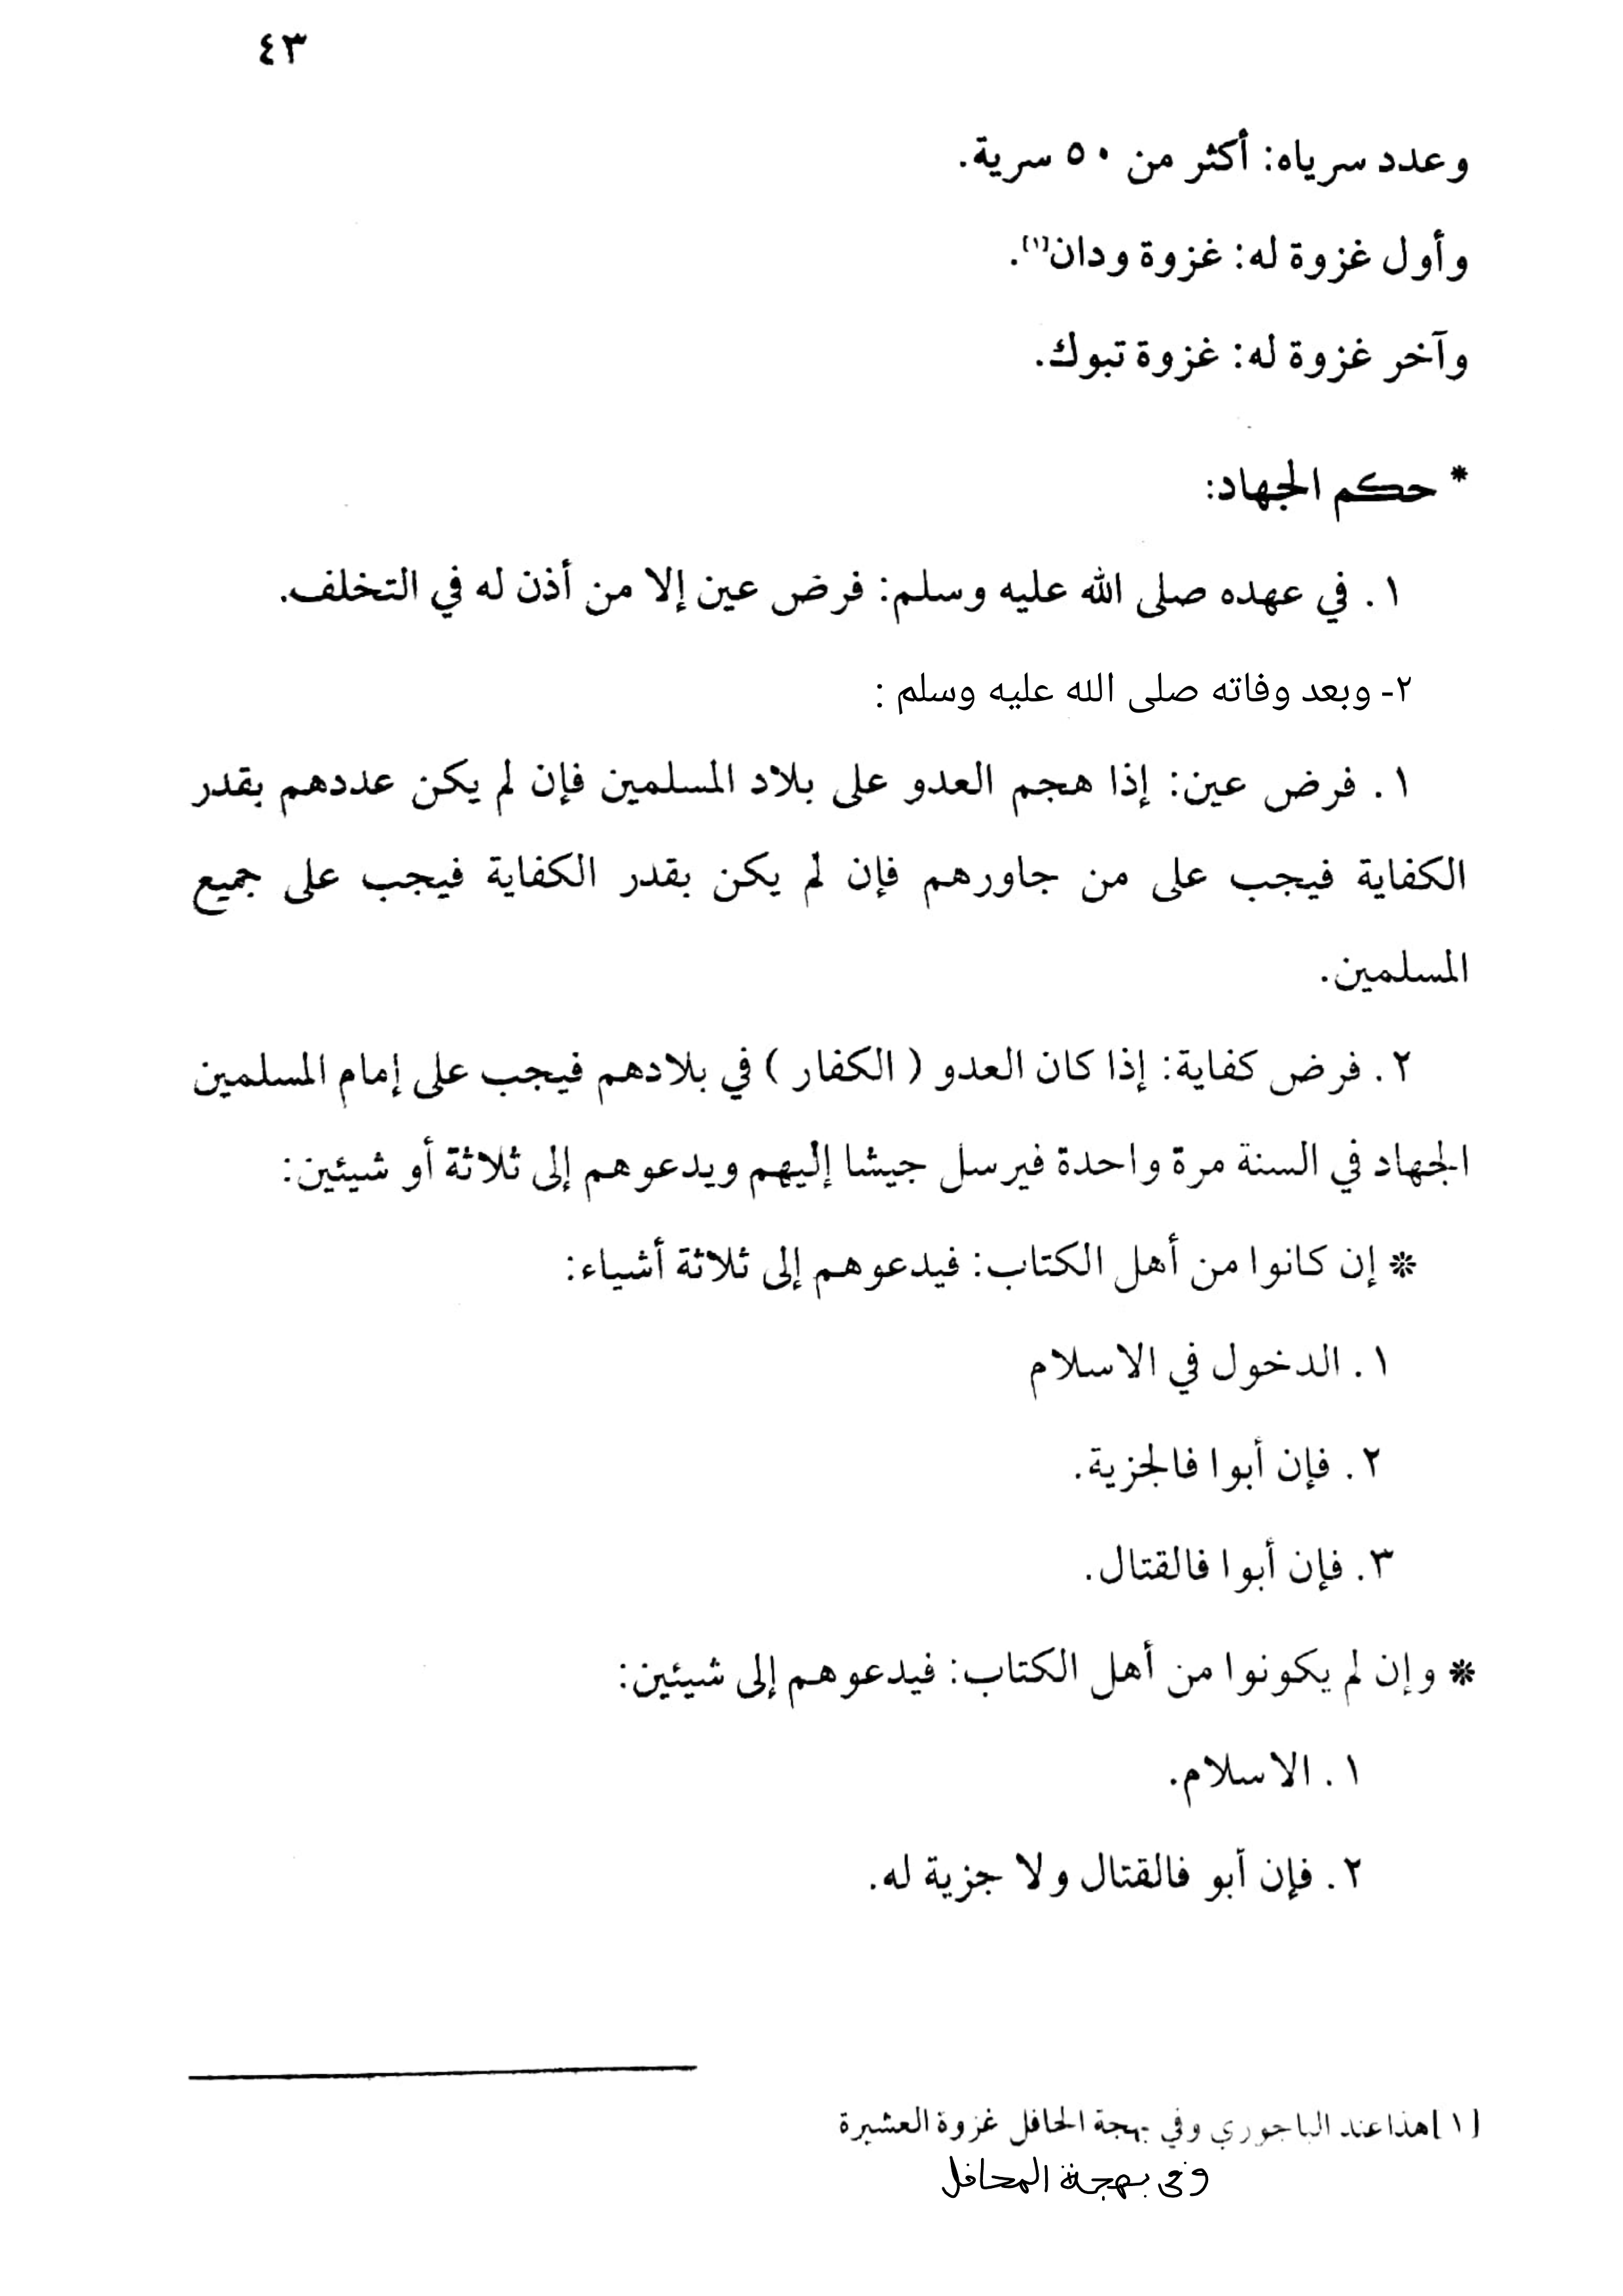 ٤٣
وعدد سرياه: أكثر من ٥٠ سرية.
وأول غزوة له: غزوة ودان(١).
وآخر غزوة له: غزوة تبوك.
* حكم الجهاد:
١. في عهده صلى الله عليه وسلم: فرض عين إلا من أذن له في التخلف.
٢- وبعد وفاته صلى الله عليه وسلم :
١. فرض عين: إذا هجم العدو على بلاد المسلمين فإن لم يكن عددهم بقدر
الكفاية فيجب على من جاورهم فإن لم يكن بقدر الكفاية فيجب على جميع
المسلمين.
٢. فرض كفاية: إذا كان العدو ( الكفار ) في بلادهم فيجب على إمام المسلمين
الجهاد في السنة مرة واحدة فيرسل جيشا إليهم ويدعوهم إلى ثلاثة أو شيئين:
* إن كانوا من أهل الكتاب: فيدعوهم إلى ثلاثة أشياء:
١. الدخول في الاسلام
٢. فإن أبوا فالجزية.
٣. فإن أبوا فالقتال.
* وإن لم يكونوا من أهل الكتاب: فيدعوهم إلى شيئين:
١. الاسلام.
٢. فإن أبو فالقتال ولا جزية له.
(١) هذا عند الباجوري وفي بهجة الحافل غزوة العشيرة
وفى بهجة المحافل